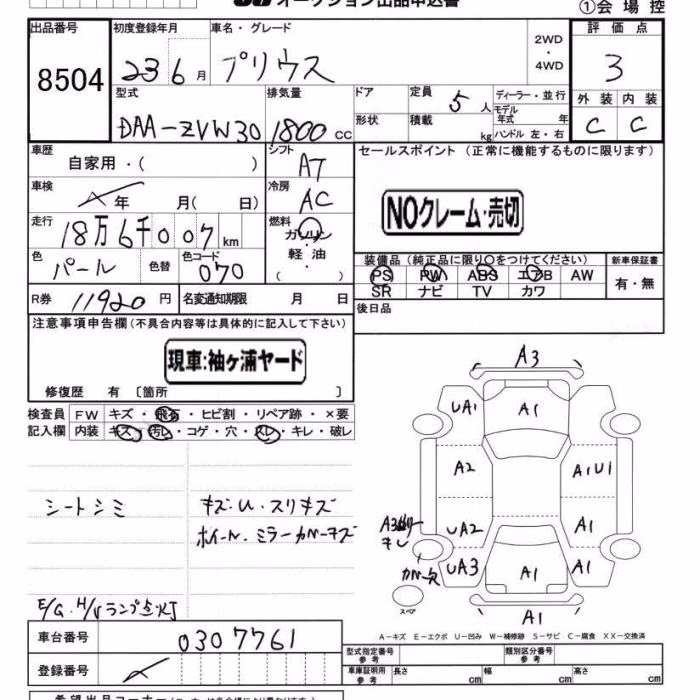 オークション出品申込書
①会場控
出品番号 初度登録年月 車名・グレード 2WD・4WD 評価点
8504 23 6月 プリウス 3
型式 排気量 ドア 定員 5人 ディーラー・並行 外装 内装
DAA-ZVW30 1800cc 形状 積載 kg モデル年式 年 ハンドル 左・右 C C
車歴 自家用・( ) シフト AT セールスポイント (正常に機能するものに限ります)
車検 年 月( 日) 冷房 AC NOクレーム・売切
走行 18万6千007km 燃料 ガソリン・軽油( )
色 パール 色替 色コード 070 装備品(純正品に限り○をつけてください) 新車保証書
PS PW ABS エアB AW 有・無
SR ナビ TV カワ
R券 11920円 名変通知期限 月 日 後日品
注意事項申告欄(不具合内容等は具体的に記入して下さい)
現車:袖ヶ浦ヤード
修復歴 有 〔箇所 〕
検査員 FW キズ・飛石・ヒビ割・リペア跡・×要
記入欄 内装 キズ・汚レ・コゲ・穴・スレ・キレ・破レ
A3
UA1 A1
A2 A1U1
シートシミ キズ・U・スリキズ
ホイール・ミラーカバーキズ
UA2 A1
カバー欠 UA3 A1 A1
スペア
A1
E/G、H/Vランプ点灯
A-キズ E-エクボ U-凹み W-補修跡 S-サビ C-腐食 XX-交換済
車台番号 0307761
型式指定番号 参考 類別区分番号 参考
登録番号
車庫証明用 参考 長さ cm 幅 cm 高さ cm
希望出品コーナー